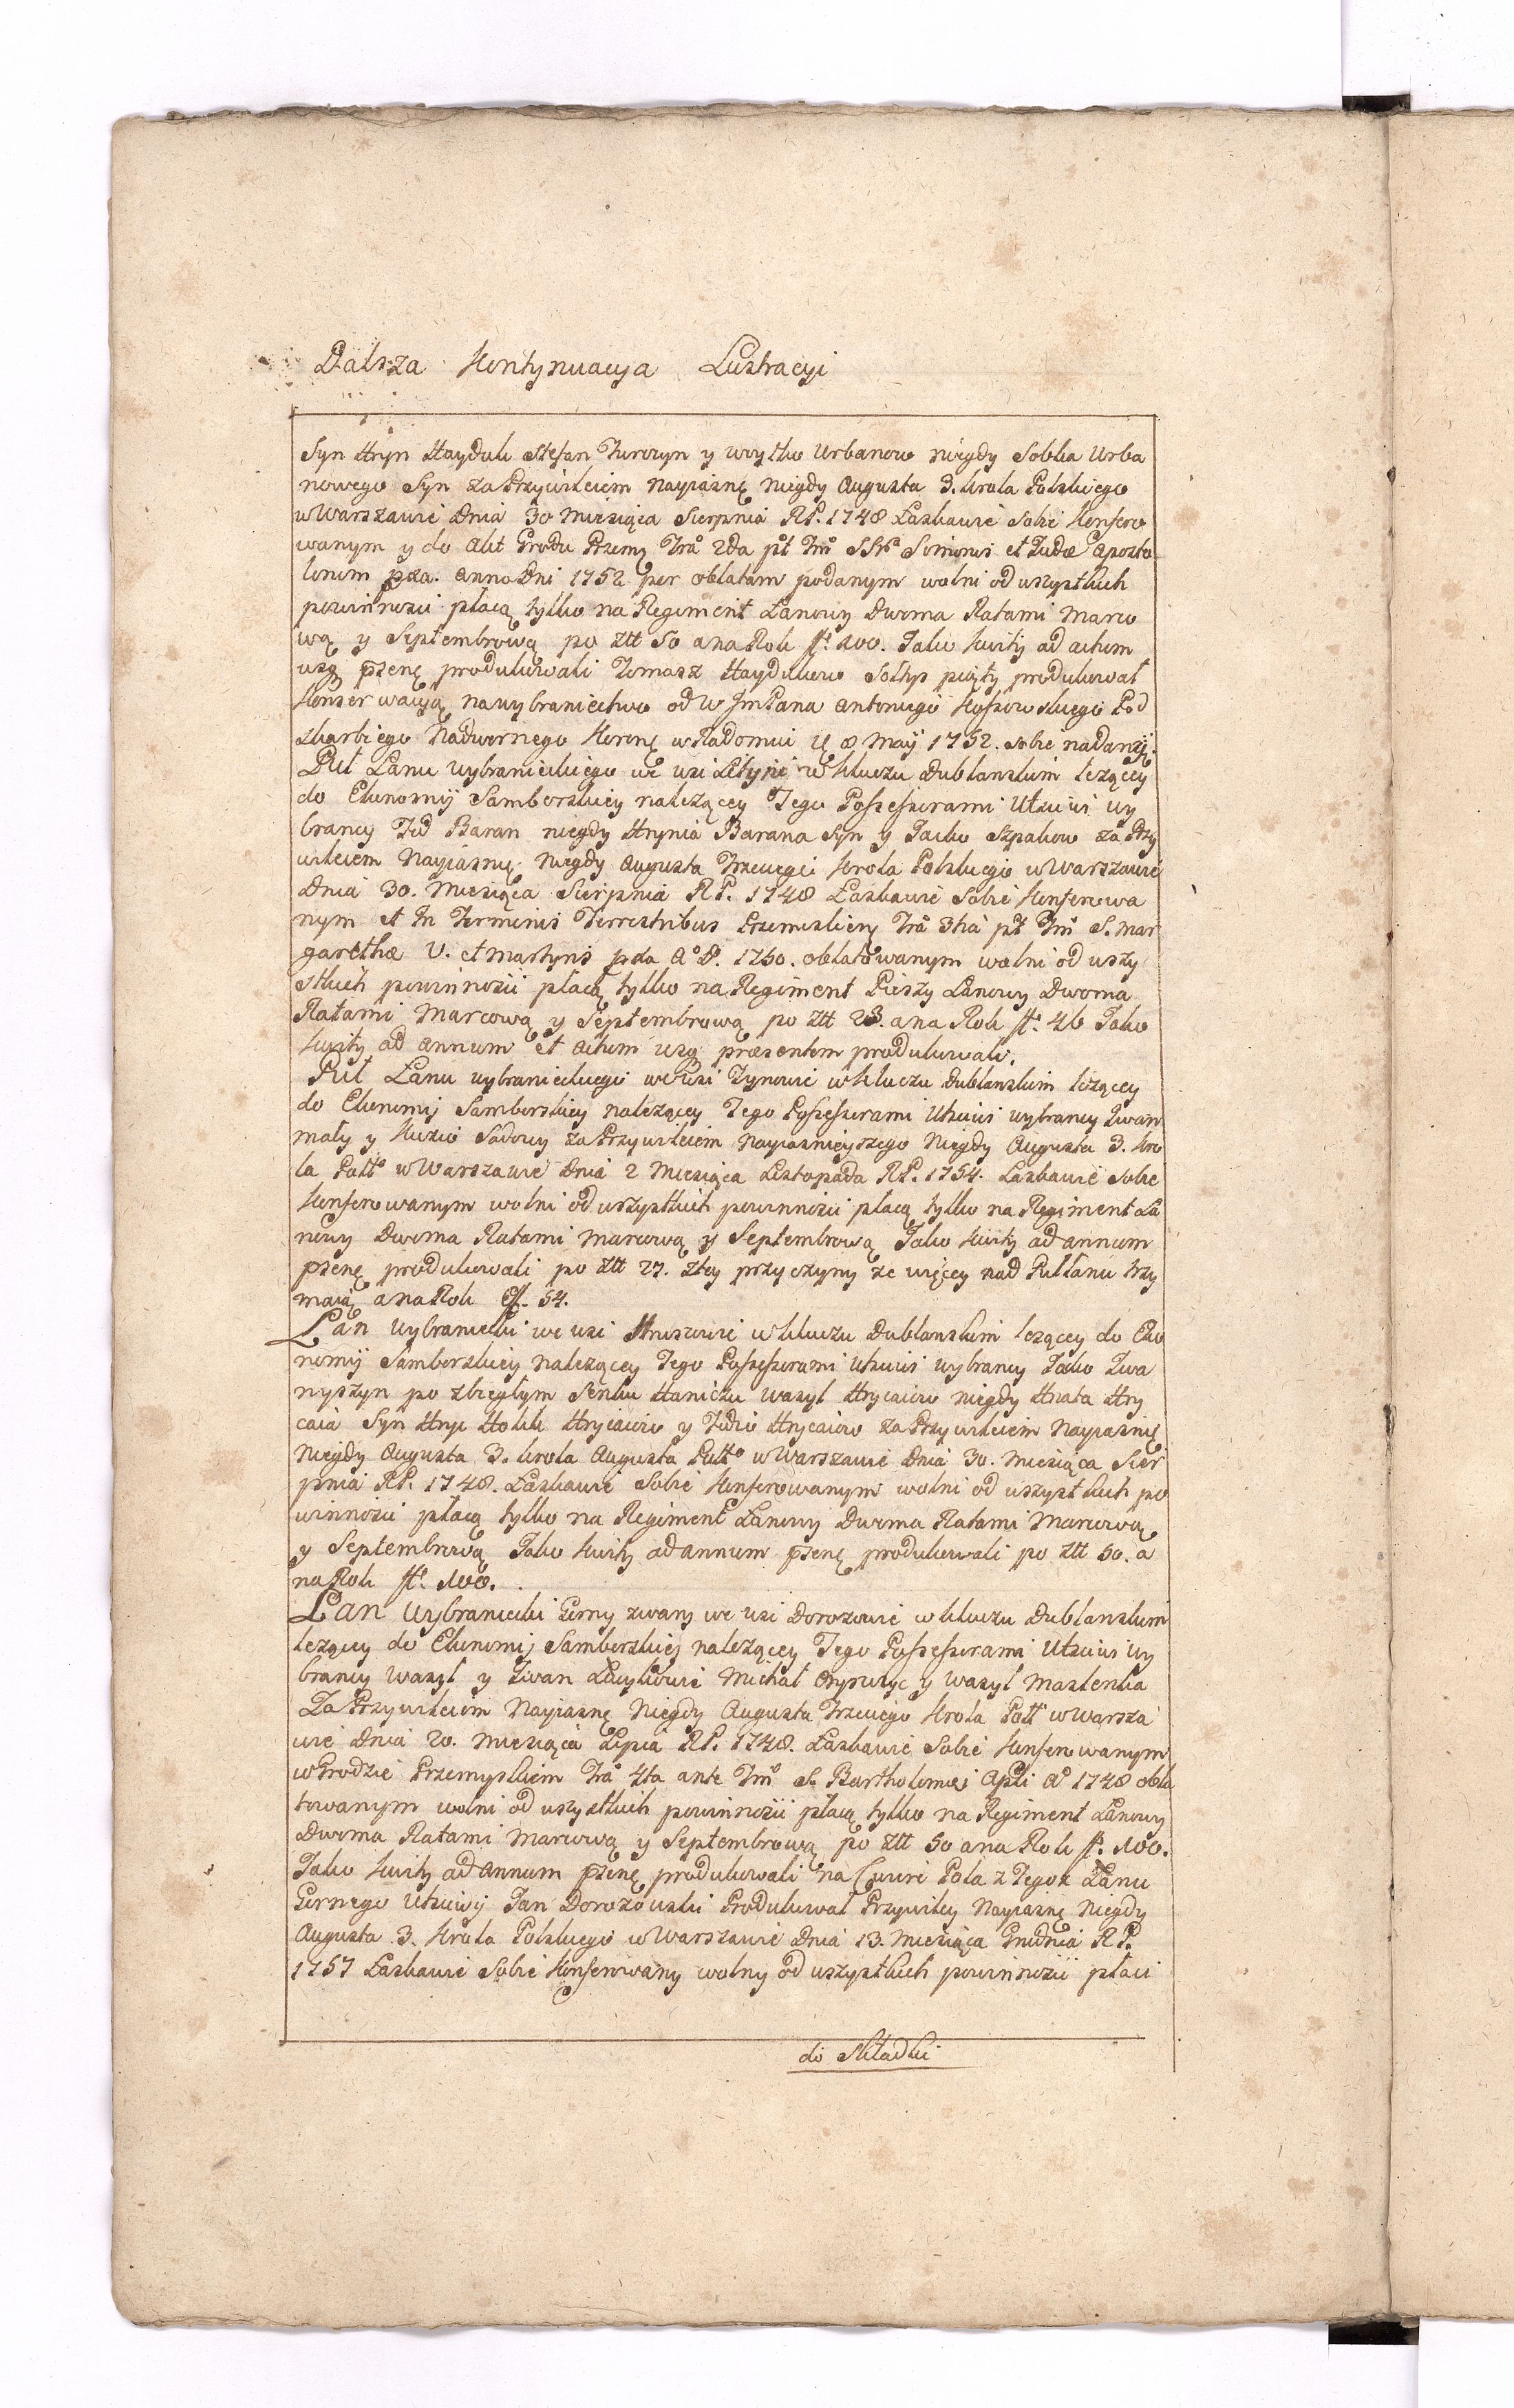 Dalsza Kontynuacya Lustracyi
Syn Hryn Hayduk Stefan Turczyn y woytko Urbanow niegdy Sobka Urba
nowego Syn za Przywileiem Nayiasnę niegdy Augusta 3. krola Polskiego
w Warszawie Dnia 30 Miesiąca Sierpnia RP. 1748 Łaskawie Sobie Konfero
wanym y do Akt Grodu Przemy fra 2da pt fm SS Simonis et Judæ Aposto
lorum pxa. Anno Dni 1752 per oblatam podanym wolni od wszystkich
powinnosci płacą tylko na Regiment Łanowy Dwoma Ratami Marco
wą y Septembrową po Złł 50 a na Rok ff. 100. Jako kwity ad actum
usq psenę produkowali Tomasz Haydukow Sołtys piąty produkował
Konserwacyą na wybraniectwo od W JmPana Antoniego Kossowskiego Pod
skarbiego Nadwornego Koronę w Radomiu 8 Maÿ 1752. sobie nadany.
Puł Łanu wybranieckiego we wsi Letyni w kluczu Dublanskim lezącey
do Ekonomÿ Samborskiey nalezącey Tego Possessorami Utciwi wy
brancy Fed Baran niegdy Hrynia Barana Syn y Jacko Szpakow za Przy
wileiem Nayiasnię. Niegdy Augusta Trzeciego krola Polskiego w Warszawie
Dnia 30. Miesiąca Sierpnia RP. 1748 Łaskawie Sobie Konferowa
nym et In Terminis Terrestribus Przemisliens fra 3tia pt fm S. Mar
garethæ V. et Martyris pxa A° D. 1750. oblatowanym wolni od wszy
stkich powinnosci płacą tylko na Regiment Pieszy Łanowy Dwoma
Ratami Marcową y Septembrową po Złł 23. a na Rok ff. 46 Jako
kwity ad annum et actum usq præsentem produkowali.
Puł Łanu wybranieckiego we Wsi Tynowie w kluczu Dublanskim lezącey
do Ekonomij Samborskiey nalezącey Tego Possessorami Utciwi wybrancy Iwan
Mały y Kuzio Sadowy za Przywileiem Nayiasnieyszego Niegdy Augusta 3. kro
la Poll° w Warszawie Dnia 2 Miesiąca Listopada RP. 1754. Łaskawie Sobie
Konferowanym wolni od wszystkich powinnosci płacą tylko na Regiment Ła
nowy Dwoma Ratami Marcową y Septembrową Jako kwity ad annum
psenę produkowali po Złł 27. ztey przyczyny ze więcey nad Puł Łanu trzy
maią a na Rok ff. 54.
Łan wybraniecki we wsi Hruszowie w kluczu Dublanskim lezącey do Eko
nomÿ Samborskiey nalezącey Tego Possessorami Utciwi wybrancy Jacko Iwa
nyszyn po zbiegłym Seńku Haniczu Wasyl Hrycaiow niegdy Hnata Hry
caia Syn Hryc Hrycaiow y Fedio Hrycaiow za Przywileiem Nayiasnię
Niegdy Augusta 3. krola Augusta Poll° w Warszawie Dnia 30. Miesiąca Sier
pnia RP. 1748. Łaskawie Sobie Konferowanym wolni od wszystkich po
winnosci płacą tylko na Regiment Łanowy Dwoma Ratami Marcową
y Septembrową Jako kwity ad annum psenę produkowali po Złł 50. a
na Rok ff. 100.
Łan wybraniecki Gorny zwany we wsi Dorozowie w kluczu Dublanskim
lezącey do Ekonomij Samborskiej nalezącey Tego Possessorami Utciwi wy
brancy Wasyl y Iwan Michał y Wasyl Maslenka
Za Przywileiem Nayiasnę Niegdy Augusta Trzeciego Krola Poll w Warsza
wie Dnia 20. Miesiąca Lipca RP. 1748. Łaskawie Sobie Konferowanym
w Grodzie Przemyskiem fra 4ta ante fm S. Bartholomei Apli A° 1748 obla
towanym wolni od wszystkich powinnosci płacą tylko na Regiment Łanowy
Dwoma Ratami Marcową y Septembrową po Złł 50 a na Rok ff. 100.
Jako kwity ad annum psenę produkowali na Cwierc Pola z Tegoz Łanu
Gornego Utciwy Jan Dorozowski Produkował Przywiley Nayiasnę Niegdy
Augusta 3. Krola Polskiego w Warszawie Dnia 13. Miesiąca Grudnia RP.
1757 Łaskawie Sobie Konferowany wolny od wszystkich powinnosci płaci
do Składki